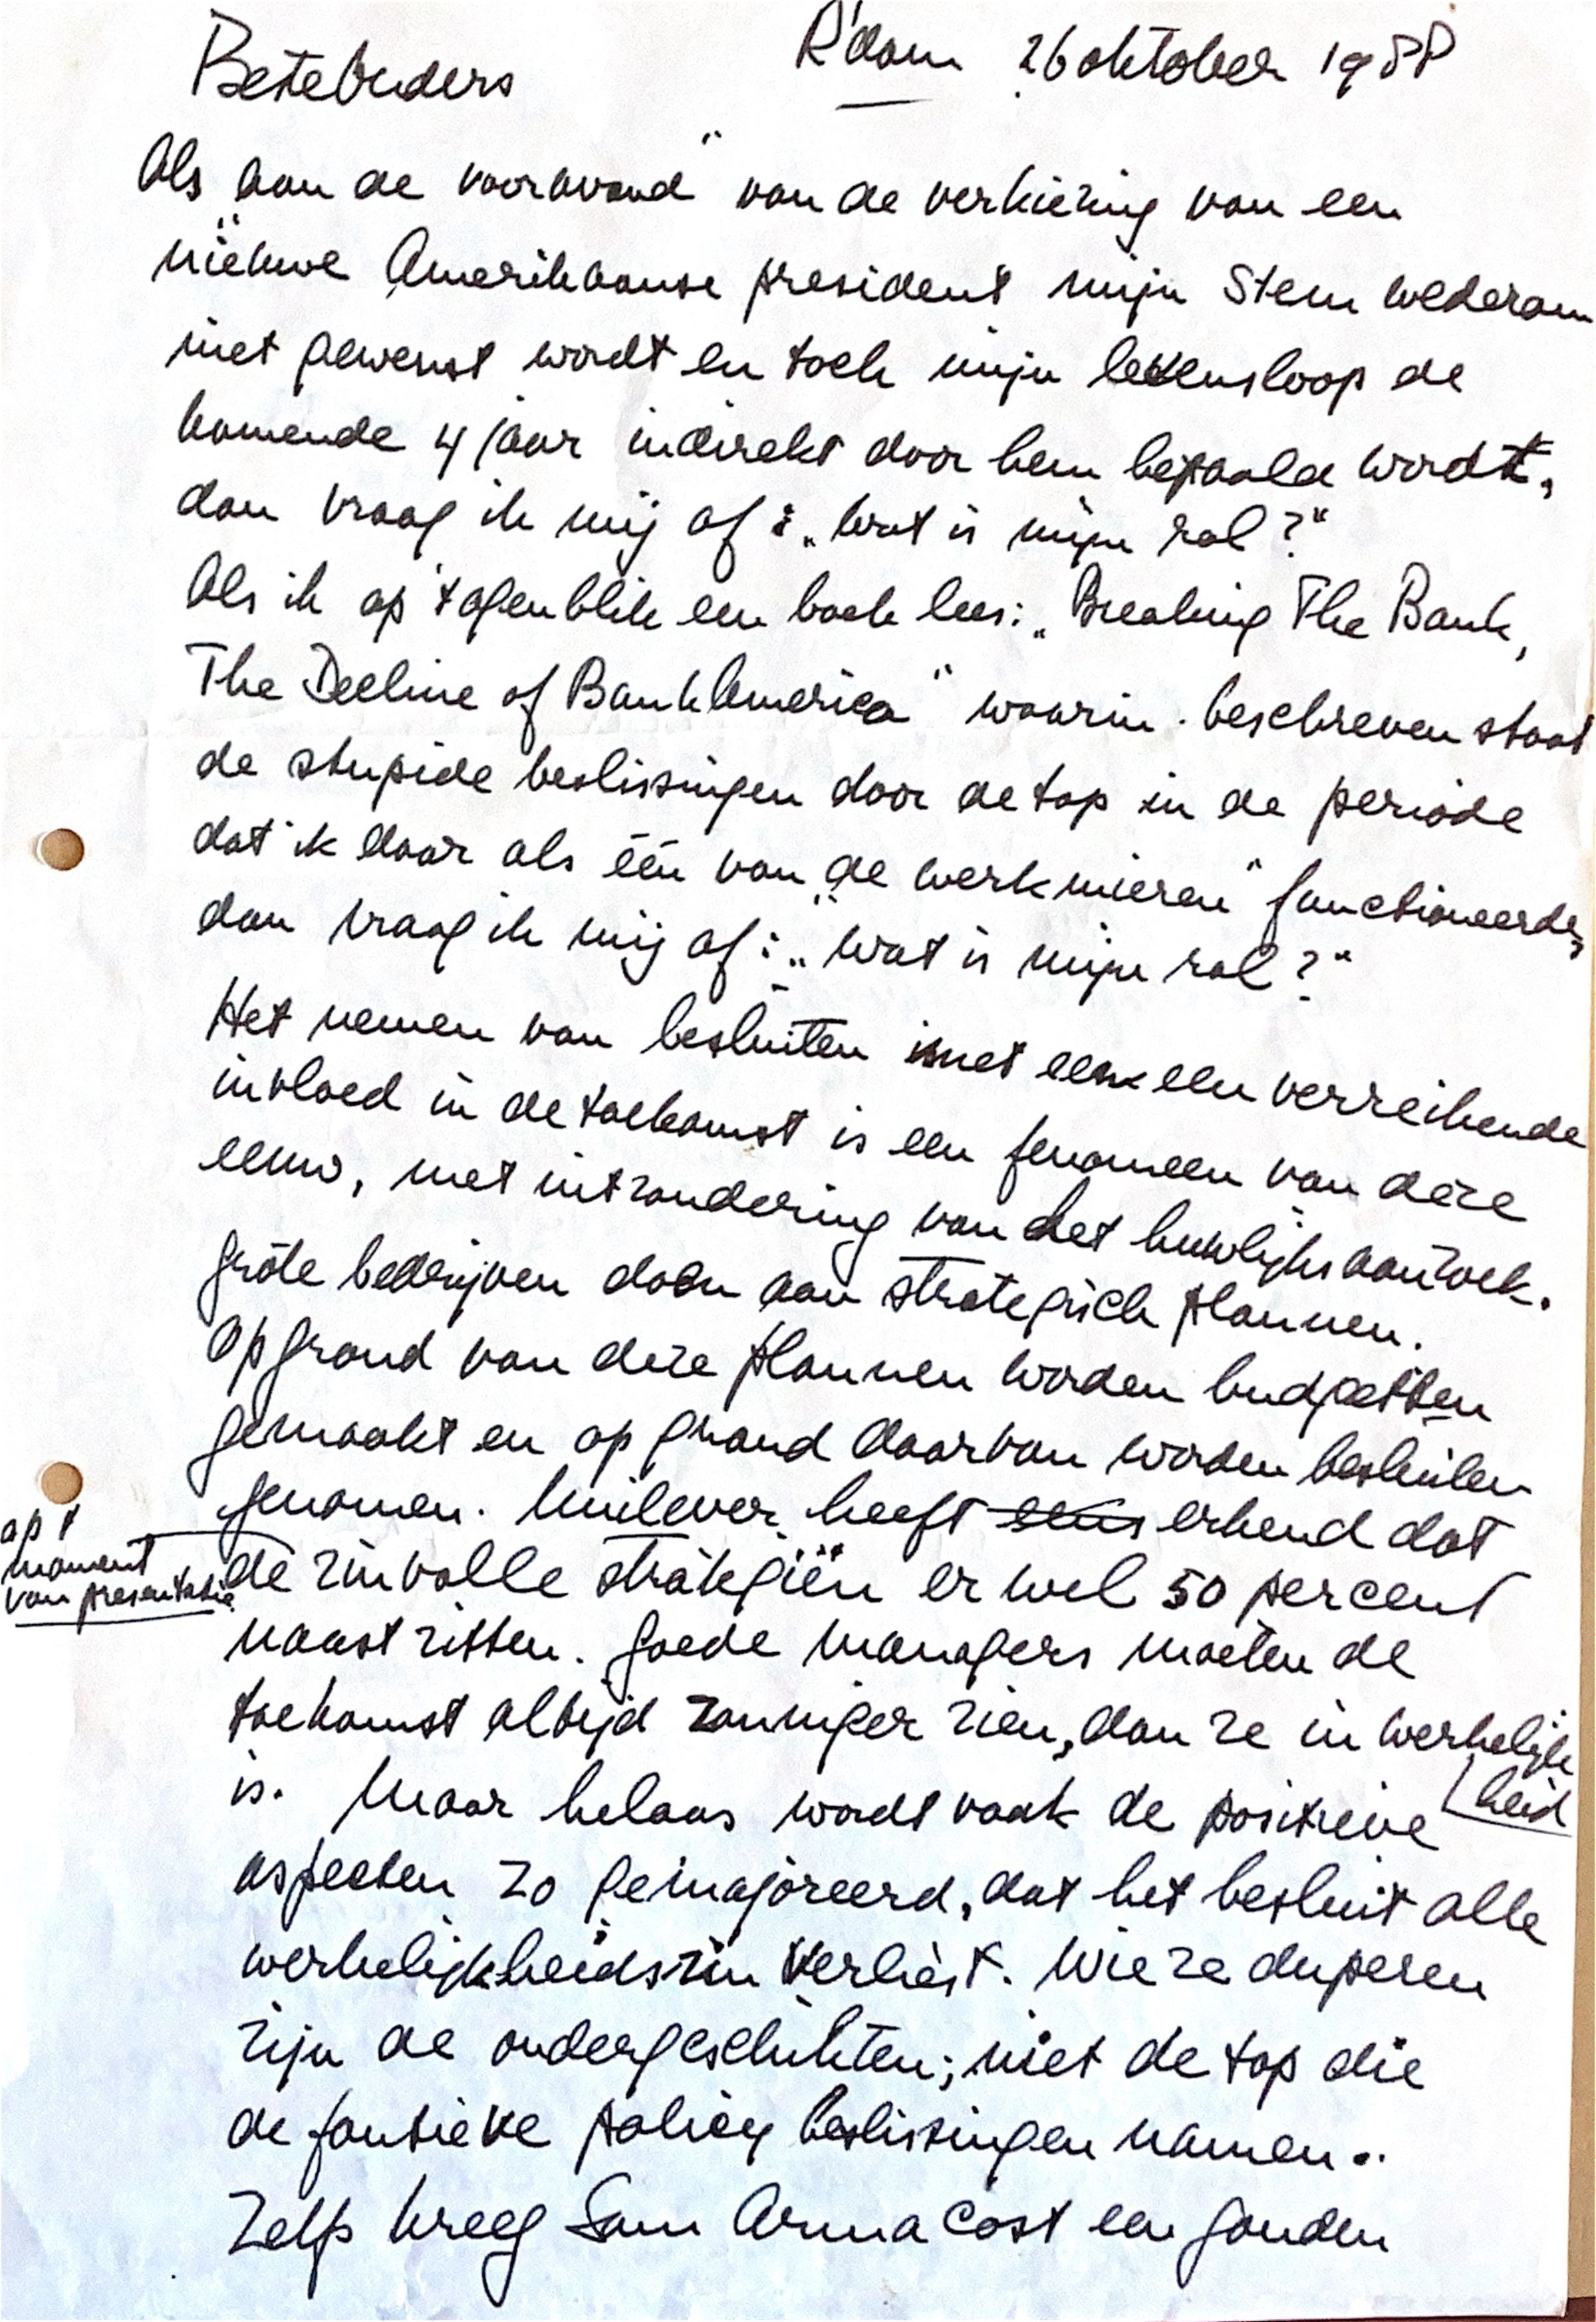 R'dam 26 oktober 1988
Betebruders
Als "aan de vooravond" van de verkiezing van een
nieuwe Amerikaanse president mijn stem wederom
niet gewenst wordt en toch mijn levensloop de
komende 4 jaar indirekt door hem bepaald wordt,
dan vraag ik mij af: „Wat is mijn rol?"
Als ik op 't ogenblik een boek lees: „Breaking The Bank,
The Decline of BankAmerica" waarin beschreven staat
de stupide beslissingen door de top in de periode
dat ik daar als één van „de werkmieren" functioneerde,
dan vraag ik mij af: „Wat is mijn rol?"
Het nemen van besluiten met een verreikende
invloed in de toekomst is een fenomeen van deze
eeuw, met uitzondering van het huwlijksaanzoek.
Grote bedrijven doen aan strategisch plannen.
Op grond van deze plannen worden budgetten
gemaakt en op grond daarvan worden besluiten
genomen. Unilever heeft erkend dat
op 't
moment
van presentatie
de zinvolle strategiën er wel 50 percent
naast zitten. Goede managers moeten de
toekomst altijd zonniger zien, dan ze in werkelijk
heid
is. Maar helaas wordt vaak de positieve
aspecten zo gemajoreerd, dat het besluit alle
werkelijkheidszin verliest. Wie ze duperen
zijn de ondergeschikten; niet de top die
de foutieve policy beslissingen namen..
Zelfs kreeg Sam Armacost een gouden